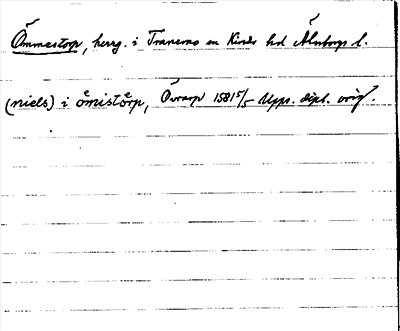 Ömmestorp, herrg. i Tranemo sn Kinds hd Älvsborgs l.
(niels) i ömistörp, Öxarp 1581 5/5 Upps. dipl. orig.